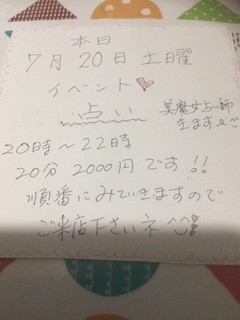 本日
7月20日土曜
イベント♡
占い
美魔女占い師
来ます
20時～22時
20分 2000円です!!
順番にみていきますので
ご来店下さいネ^^!